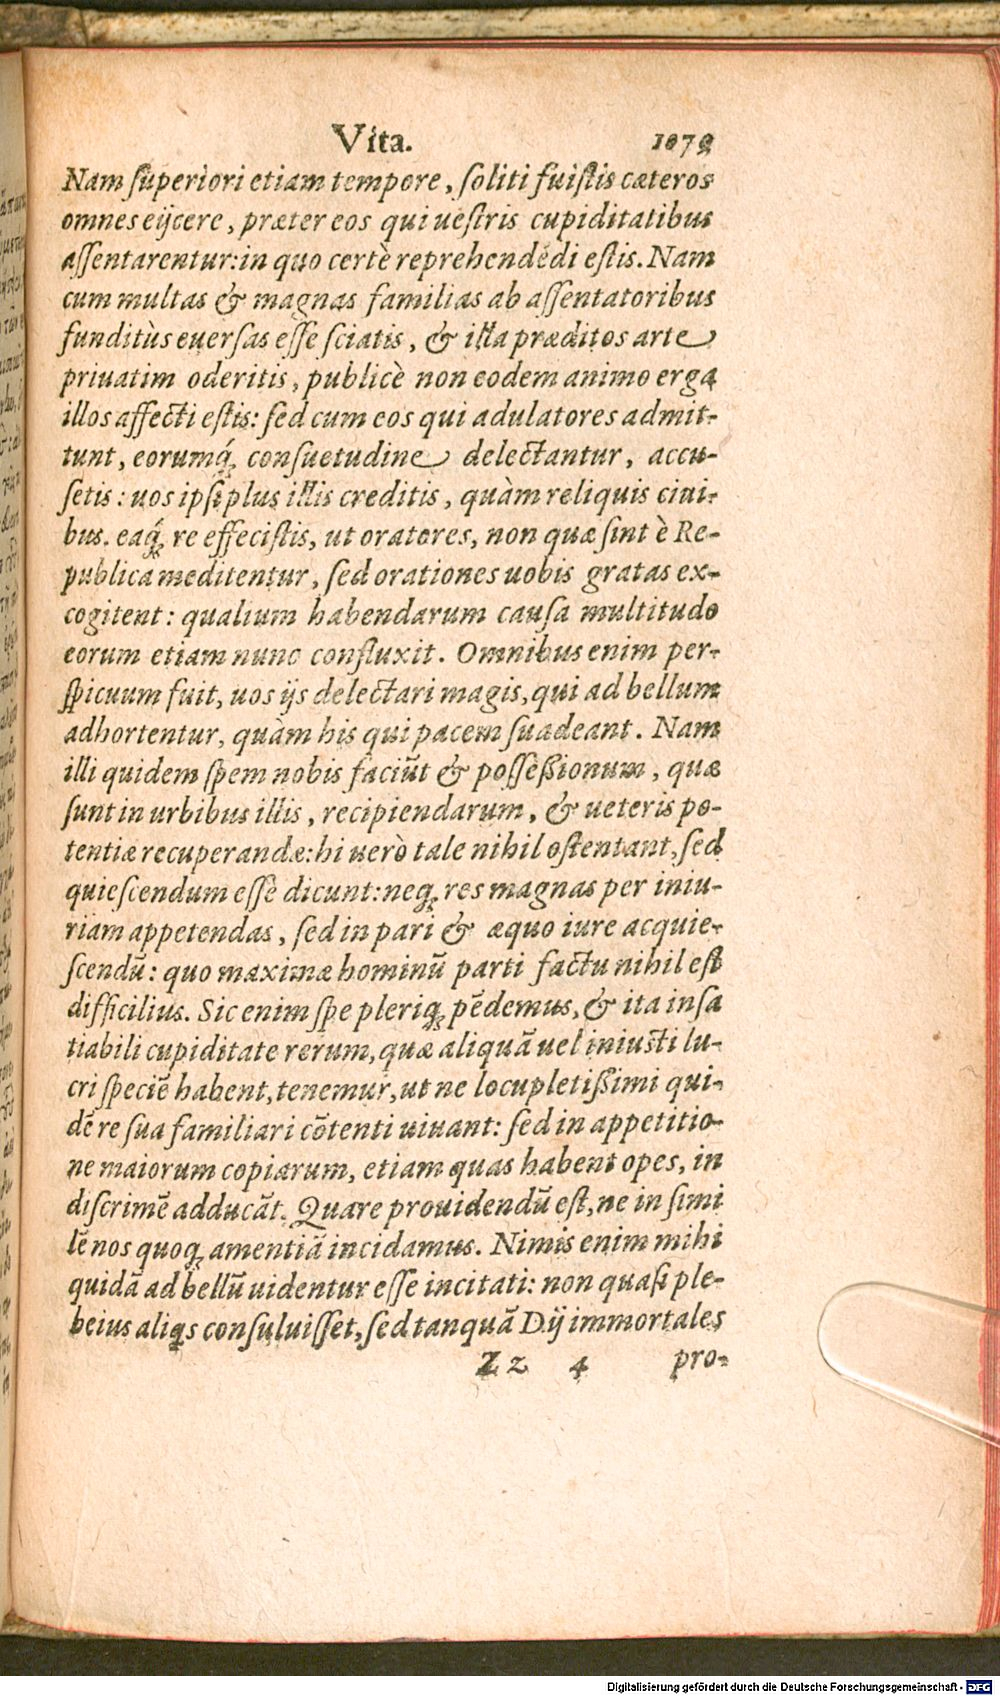 Vita. 1079
Nam ſuperiori etiam tempore, ſoliti fuiſtis cæteros
omnes eijcere, præter eos qui ueſtris cupiditatibus
aſſentarentur: in quo certè reprehendẽdi eſtis. Nam
cum multas & magnas familias ab aſſentatoribus
funditùs euerſas eſſe ſciatis, & illa præditos arte
priuatim oderitis, publicè non eodem animo erga
illos affecti eſtis: ſed cum eos qui adulatores admit-
tunt, eorumq́; conſuetudine delectantur, accu-
ſetis: uos ipſi plus illis creditis, quàm reliquis ciui-
bus. eaq́; re effeciſtis, ut oratores, non quæ ſint è Re-
publica meditentur, ſed orationes uobis gratas ex-
cogitent: qualium habendarum cauſa multitudo
eorum etiam nunc confluxit. Omnibus enim per-
ſpicuum fuit, uos ijs delectari magis, qui ad bellum
adhortentur, quàm his qui pacem ſuadeant. Nam
illi quidem ſpem nobis faciũt & poſſeßionum, quæ
ſunt in urbibus illis, recipiendarum, & ueteris po-
tentiæ recuperandæ: hi uerò tale nihil oſtentant, ſed
quieſcendum eſſe dicunt: neq; res magnas per iniu-
riam appetendas, ſed in pari & æquo iure acquie-
ſcendũ: quo maximæ hominũ parti factu nihil eſt
difficilius. Sic enim ſpe pleriq; pẽdemus, & ita inſa
tiabili cupiditate rerum, quæ aliquã uel iniuſti lu-
cri ſpeciẽ habent, tenemur, ut ne locupletißimi qui-
dẽ re ſua familiari cõtenti uiuant: ſed in appetitio-
ne maiorum copiarum, etiam quas habent opes, in
diſcrimẽ adducãt. Quare prouidendũ eſt, ne in ſimi
lẽ nos quoq; amentiã incidamus. Nimis enim mihi
quidã ad bellũ uidentur eſſe incitati: non quaſi ple-
beius aliqs conſuluiſſet, ſed tanquã Dij immortales
Zz 4 pro-
Digitalisierung gefördert durch die Deutsche Forschungsgemeinschaft - DFG